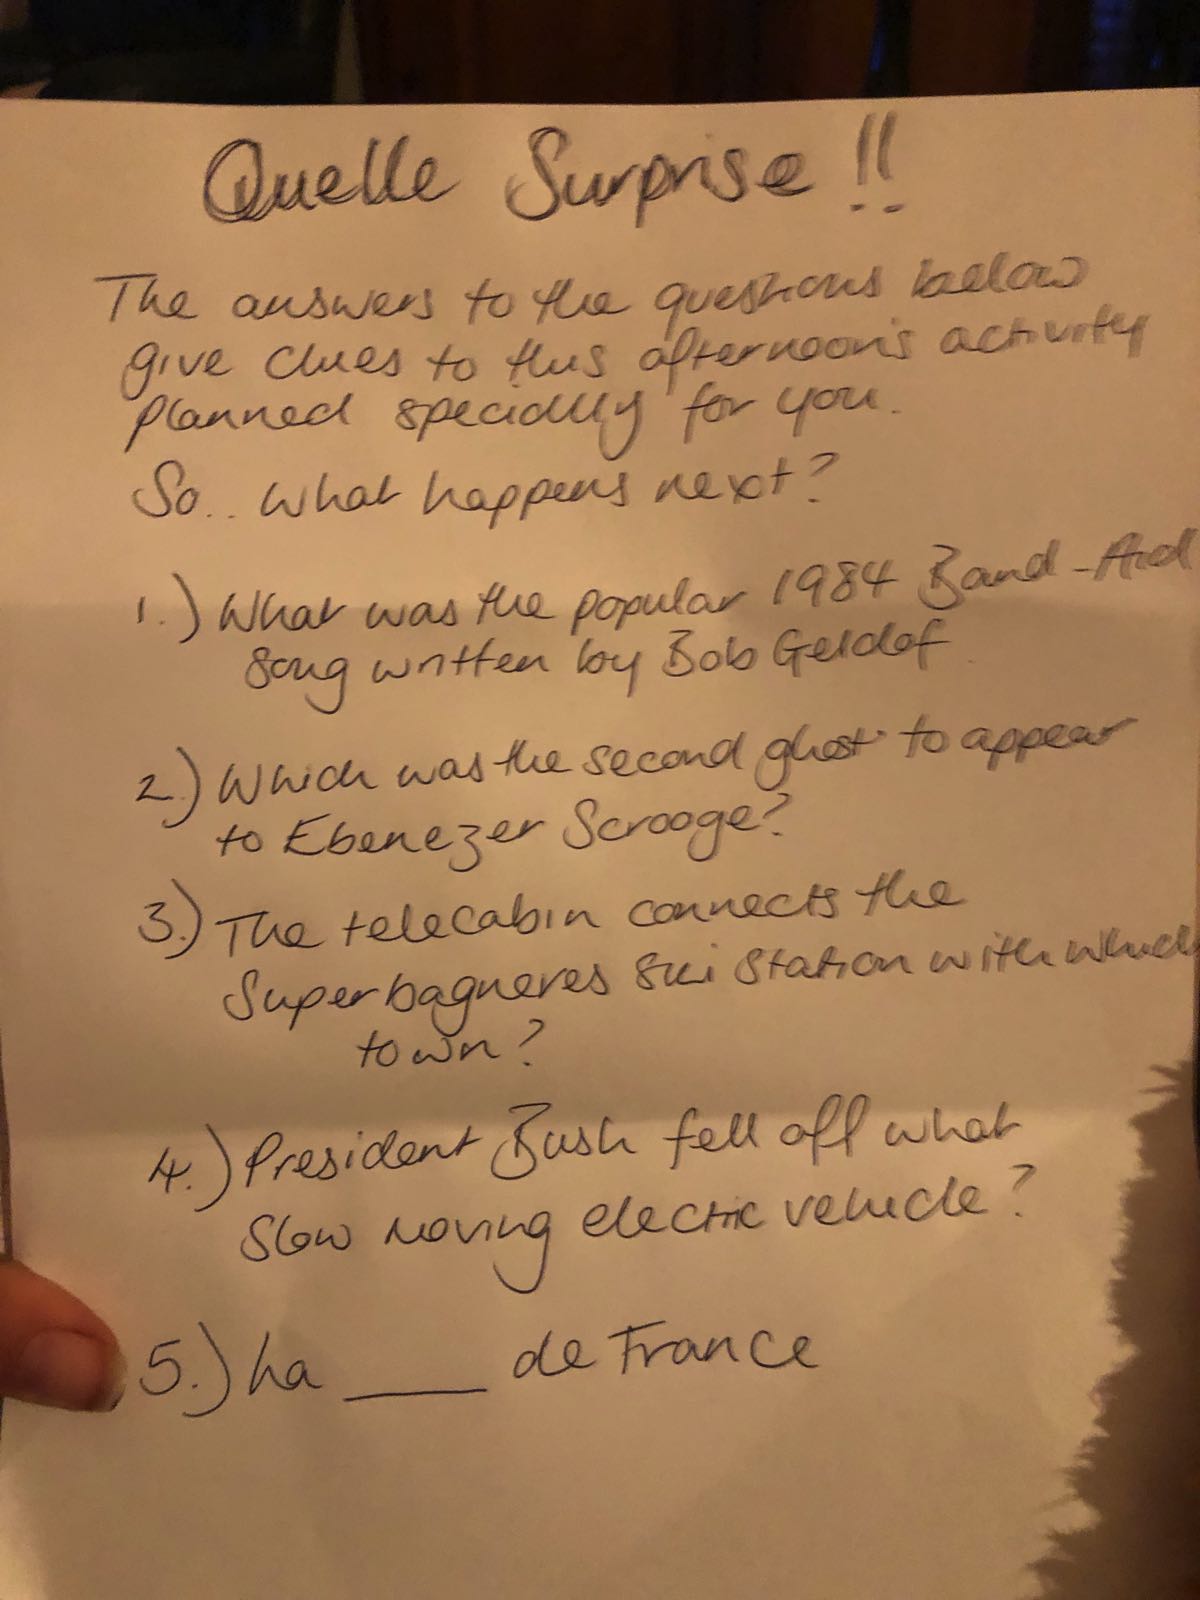 Quelle Surprise !!
The answers to the questions below
give clues to this afternoon's activity
planned specially for you.
So.. what happens next?
1.) What was the popular 1984 Band-Aid
song written by Bob Geldof
2.) Which was the second ghost to appear
to Ebenezer Scrooge?
3.) The telecabin connects the
Superbagneres ski station with which
town?
4.) President Bush fell off what
slow moving electric vehicle?
5.) La ___ de France